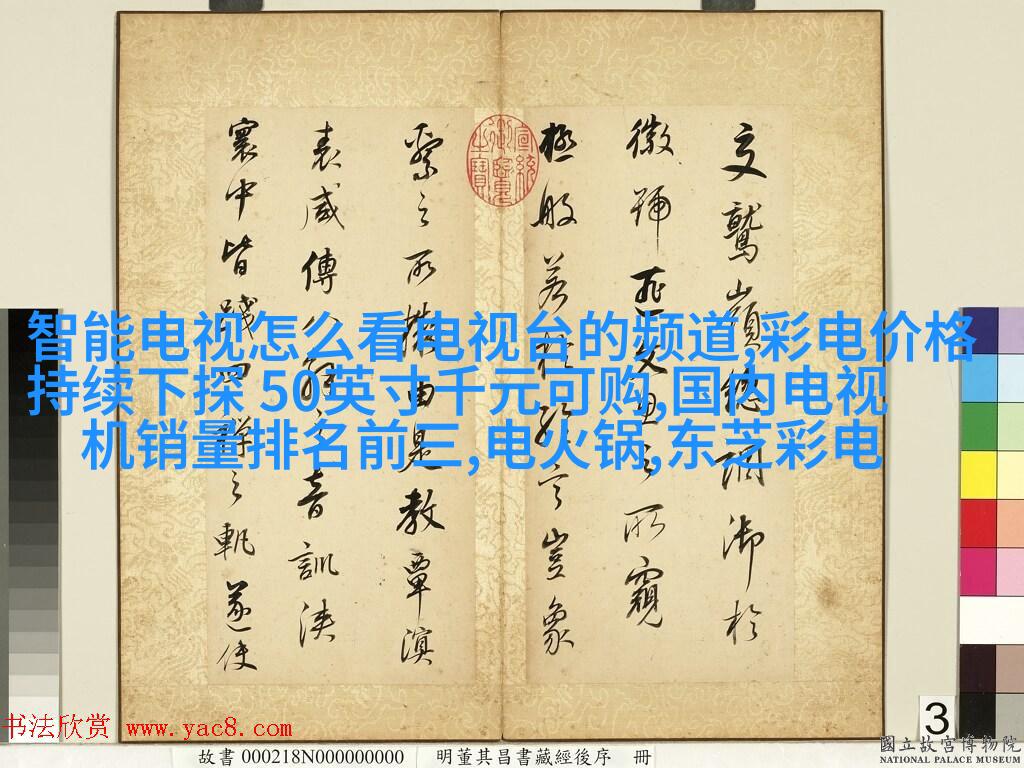 智能电视怎么看电视台的频道,彩电价格
持续下探 50英寸千元可购,国内电视
机销量排名前三,电火锅,东芝彩电
文鷲嶺總調御於
徽號匪文思之所窺
極般若於微言豈象
繫之所擬由是教覃溟
表咸傳八解之音訓浹
寰中皆踐四禪之軌遂使
书法欣赏 www.yac8.com
故書 000218N000000000
明董其昌書藏經後序 冊
3
國立故宮博物院
NATIONAL PALACE MUSEUM